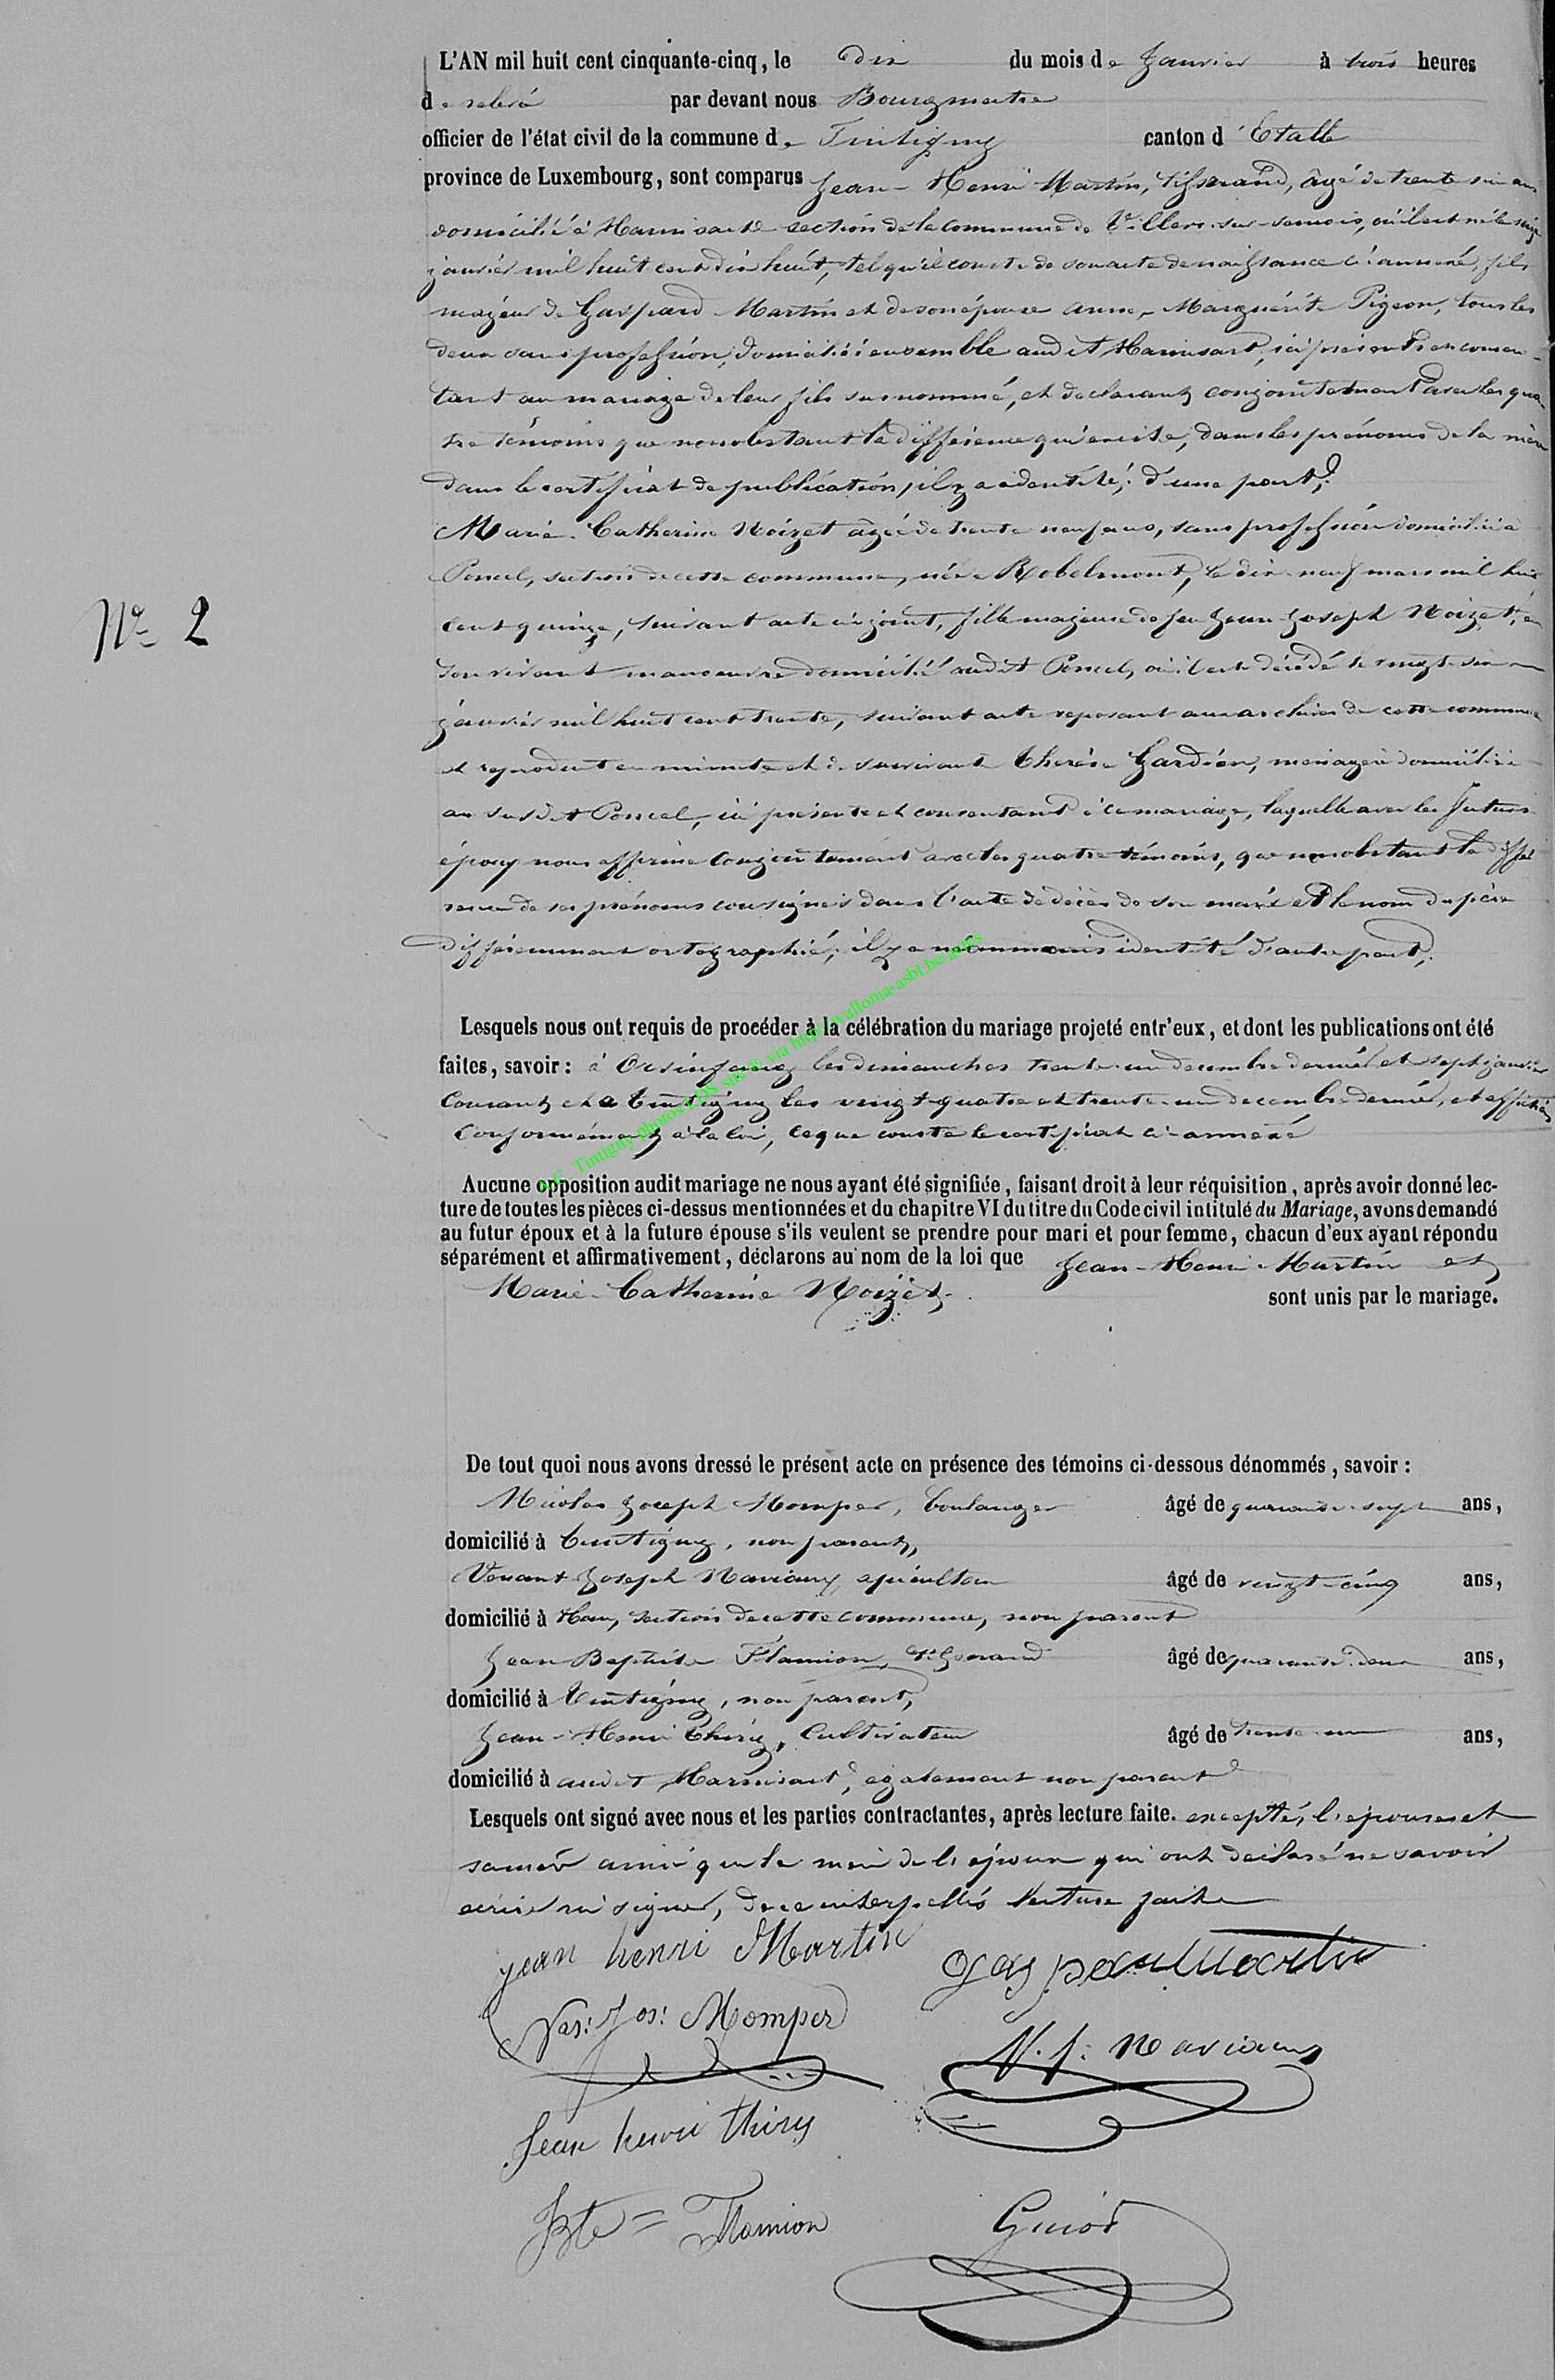 L'AN mil huit cent cinquante-cinq, le dix du mois de Janvier à trois heures
de relevé par devant nous Bourgmestre
officier de l'état civil de la commune de Tintigny canton d'Etalle
province de Luxembourg, sont comparus Jean-Henri Martin, tisserand, âgé de trente six ans
domicilié à Harinsart section de la commune de Villers-sur-semois, où il est né le seize
janvier mil huit cent dix huit, tel qu'il conste de son acte de naissance ci annexé, fils
majeur de Gaspard Martin et de son épouse anne-Marguérite Pigeon, tous les
deux sans profession, domiciliés ensemble audit Harinsart, ici présents et consen-
tant au mariage de leur fils susnommé, et déclarant conjointement avec les qua
tre témoins que nonobstant la différence qu'existe, dans les prénoms de la mère
dans le certificat de publication, il y a identité; d'une part;
Marie-Catherine Noizet âgée de trente neuf ans, sans profession domiciliée à
Poncel, section de cette commune, née à Robelmont, le dix-neuf mars mil huit
cent quinze, suivant acte ci joint, fille majeure de feu Jean Joseph Noizet, en
son vivant manoeuvre domicilié audit Poncel, où il est décédé le vingt-six
janvier mil huit cent trente, suivant acte reposant aux archives de cette commune
et reproduit en minute et de survivante Thérèse Gardien, ménagère domiciliée
au susdit Poncel, ici présente et consentant à ce mariage, laquelle avec les futurs
époux nous affirme conjointement avec les quatre témoins, que nonobstant la diffé
rence de ses prénoms consignés dans l'acte de décès de son mari et le nom du père
différemment ortographié, il y a néanmoins identité d'autre part;
Lesquels nous ont requis de procéder à la célébration du mariage projeté entr'eux, et dont les publications ont été
faites, savoir: à Orsinfaing les dimanches trente-un decembre dernier et sept janvier
courant et à Tintigny les vingt-quatre et trente-un decembre dernier, et affichées
conformément à la loi, ce que conste le certificat ci-annexé
A.C. Tintigny photos DDS site © via http://wallonia-asbl.be/actes
Aucune opposition audit mariage ne nous ayant été signifiée, faisant droit à leur réquisition, après avoir donné lec-
ture de toutes les pièces ci-dessus mentionnées et du chapitre VI du titre du Code civil intitulé du Mariage, avons demandé
au futur époux et à la future épouse s'ils veulent se prendre pour mari et pour femme, chacun d'eux ayant répondu
séparément et affirmativement, déclarons au nom de la loi que Jean-Henri Martin et
Marie-Catherine Noizet
sont unis par le mariage.
N° 2
De tout quoi nous avons dressé le présent acte en présence des témoins ci-dessous dénommés, savoir:
Nicolas Joseph Momper, boulanger âgé de quarante-sept ans,
domicilié à Tintigny, non parent,
Venant Joseph Naviaux, apiculteur âgé de vingt-cinq ans,
domicilié à Han, section de cette commune, non parent
Jean Baptiste Flamion, tisserand âgé de quarante-deux ans,
domicilié à Tintigny, non parent,
Jean-Henri Thiry, Cultivateur âgé de trente-un ans,
domicilié à audit Harinsart, également non parent
Lesquels ont signé avec nous et les parties contractantes, après lecture faite. exceptés, l'épouse et
sa mère ainsi que la mère de l'époux qui ont déclaré ne savoir
écrire ni signer, de ce interpellés lecture faite
jean henri Martin
gaspard Martin
Nas: Jos: Momper
V. J. Naviaux
Jean henri thiry
JBte = Flamion
Guiot